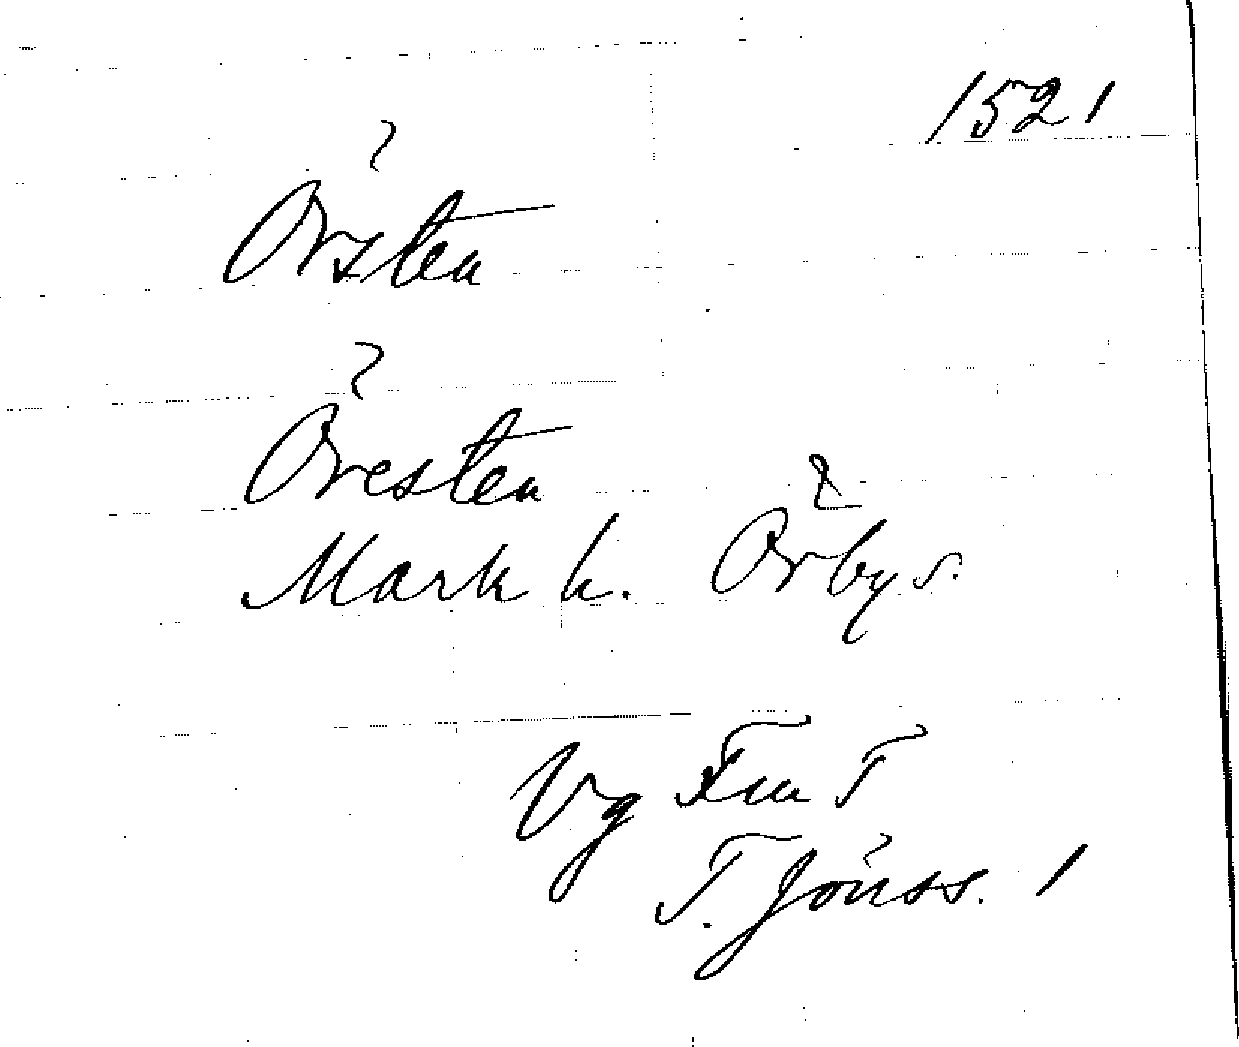 1521
Örsten
Öresten
Mark h. Örby s.
Vg Fm T
T. Jönss. 1